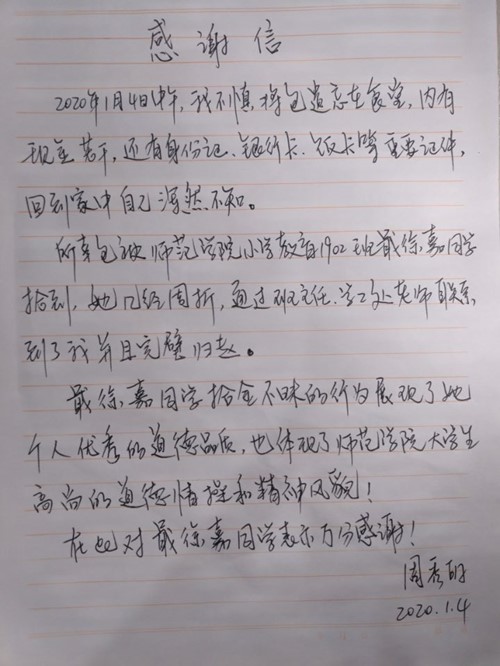 感谢信
2020年1月4日中午，我不慎将包遗忘在食堂，内有
现金若干，还有身份证、银行卡、饭卡等重要证件，
回到家中自己浑然不知。
所幸包被师范学院小学教育1902班戴徐嘉同学
拾到，她几经周折，通过班主任、学工处老师联系
到了我并且完璧归赵。
戴徐嘉同学拾金不昧的行为展现了她
个人优秀的道德品质，也体现了师范学院大学生
高尚的道德情操和精神风貌！
在此对戴徐嘉同学表示万分感谢！
周秀明
2020.1.4